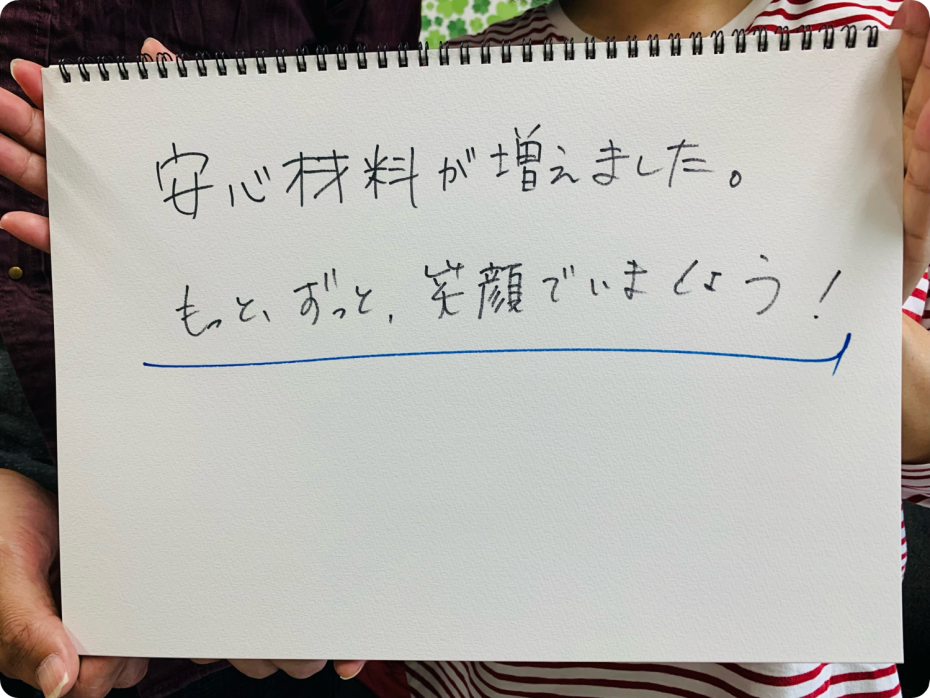 安心材料が増えました。
もっと、ずっと、笑顔でいましょう!